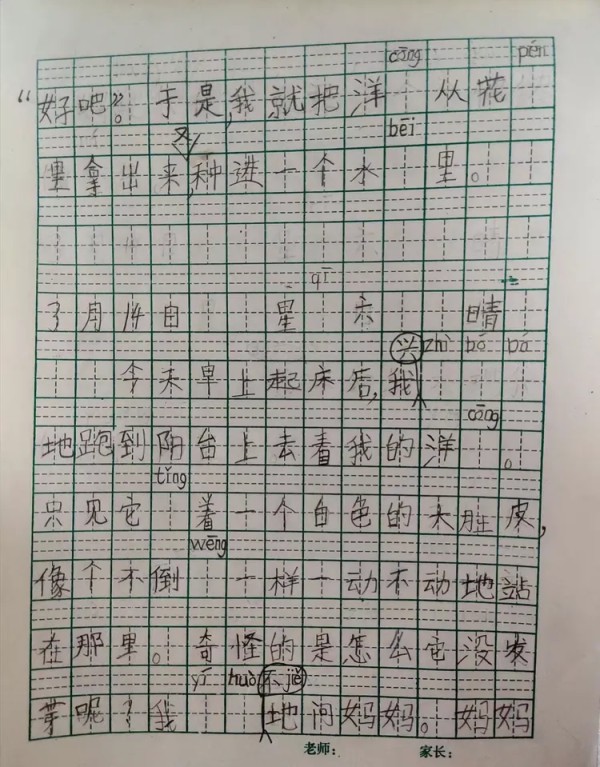 cōng pén
“好吧”。于是,我就把洋 从花
bēi
里拿出来,又种进一个水 里。
qī
3月14日 星 天 晴
兴 zhì bó bó
今天早上起床后,我
cōng
地跑到阳台上去看我的洋 。
tǐng
只见它 着一个白色的大胜皮,
wēng
像个不倒 一样一动不动地站
在那里。奇怪的是怎么它没发
yī huò 不 jiě
芽呢?我 地问妈妈。妈妈
老师： 家长：